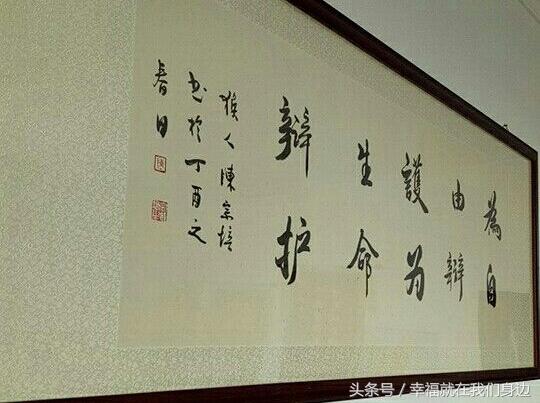 為自
由辯
護为
生命
辯护
猴人陳宗培
书於丁酉之
春日
头条号 / 幸福就在我们身边